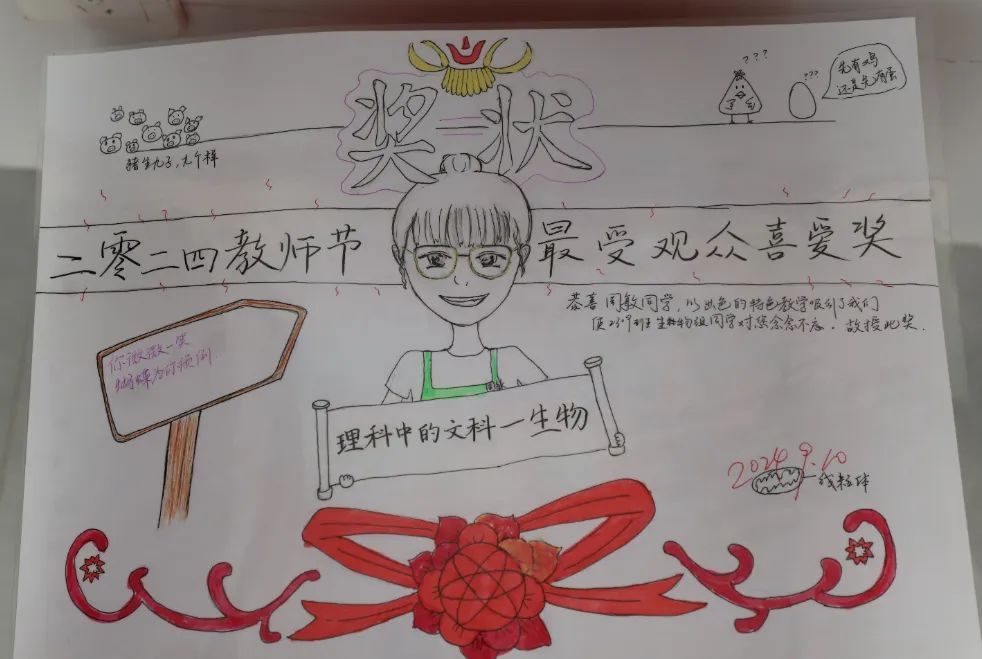 奖状
???
???
先有鸡
还是先有蛋
猪生九子,九个样
二零二四教师节 最受观众喜爱奖
恭喜周敏同学,以出色的特色教学吸引了我们
使2309班生物组同学对您念念不忘。故授此奖.
你微微一笑
蝴蝶为你倾倒.
理科中的文科—生物
2024.9.10
线粒体